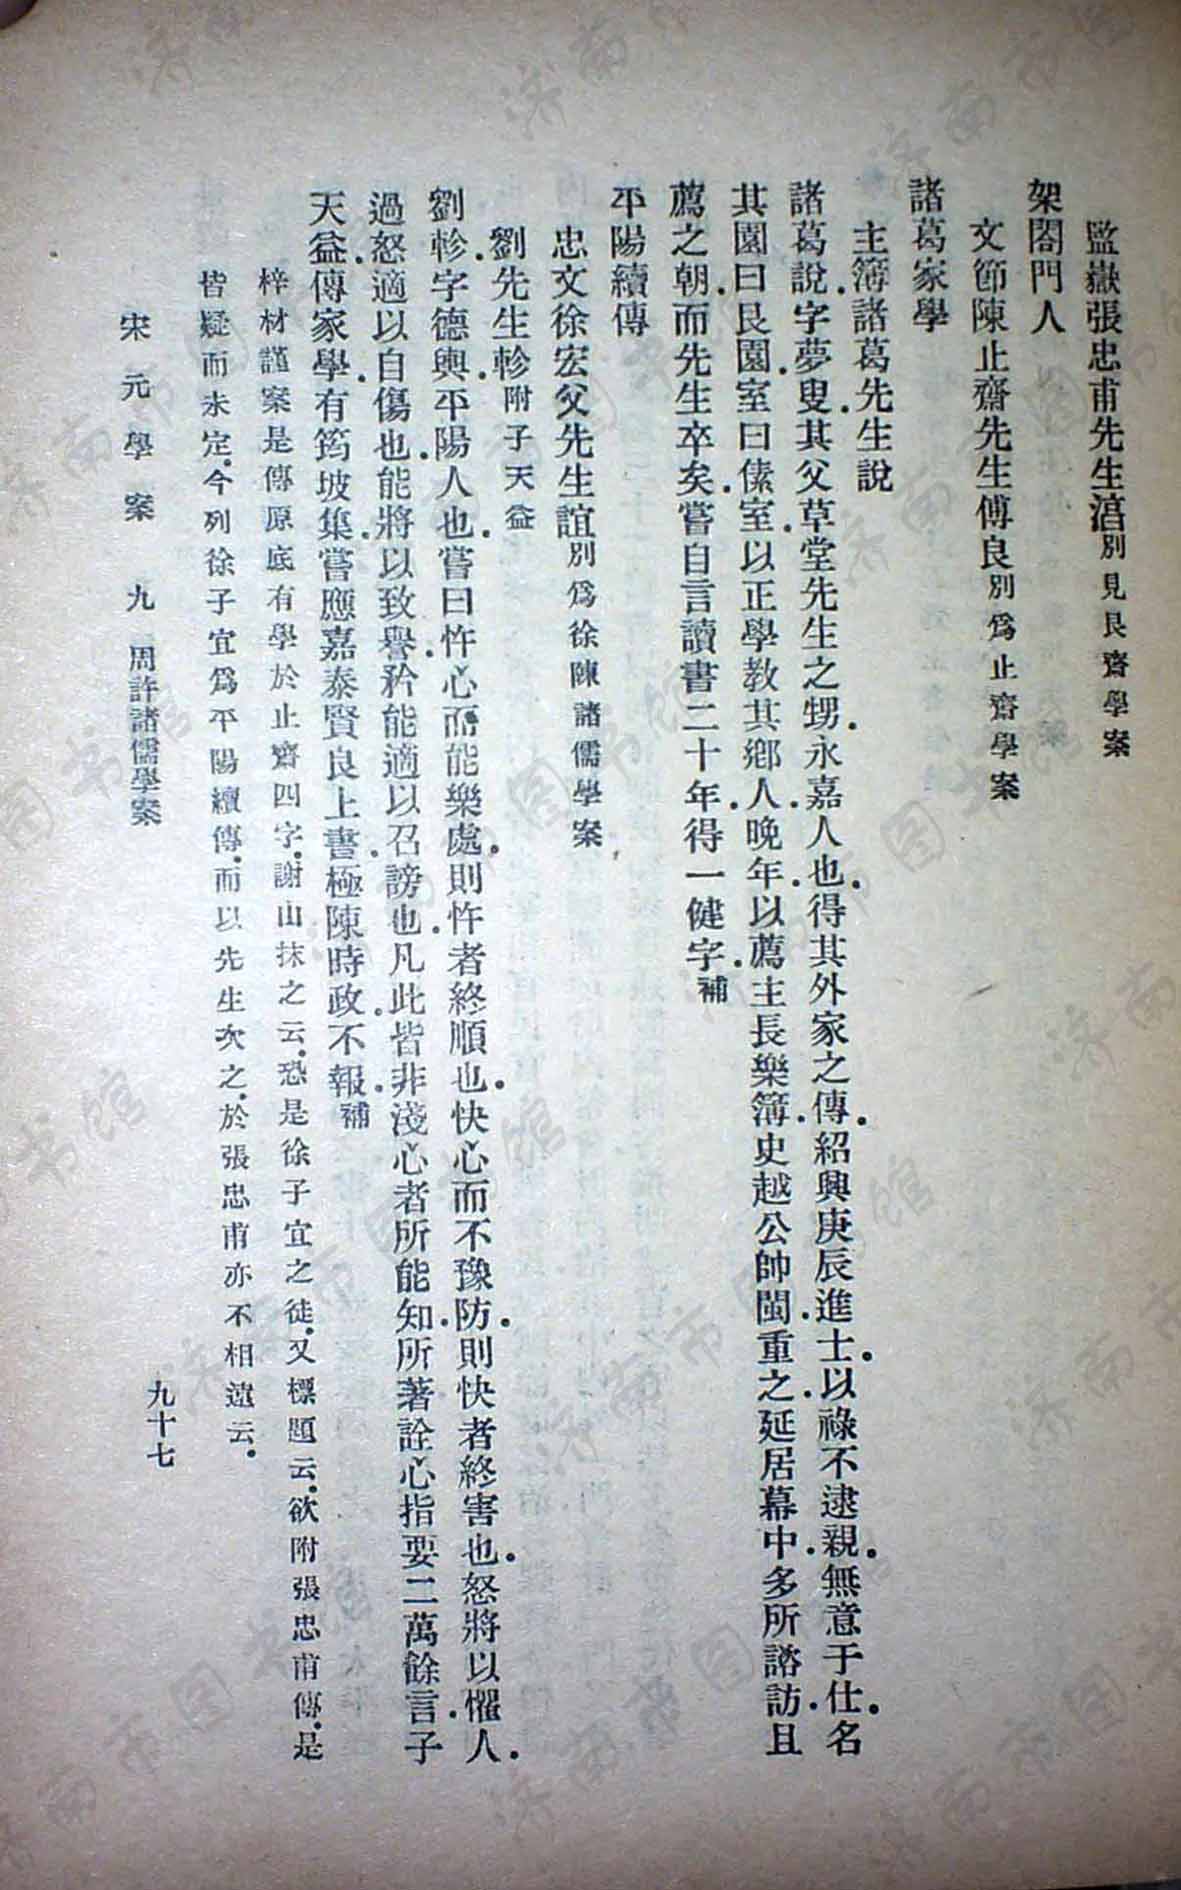 監嶽張忠甫先生淳別見艮齋學案
架閣門人
文節陳止齋先生傅良別爲止齋學案
諸葛家學
主簿諸葛先生說
諸葛說.字夢叟.其父草堂先生之甥.永嘉人也.得其外家之傳.紹興庚辰進士.以祿不逮親.無意于仕.名
其園曰艮園.室曰傃室.以正學教其鄕人.晚年.以薦主長樂簿.史越公帥閩.重之.延居幕中.多所諮訪.且
薦之朝.而先生卒矣.嘗自言讀書二十年.得一健字.補
平陽續傳
忠文徐宏父先生誼別爲徐陳諸儒學案
劉先生軫附子天益
劉軫.字德輿.平陽人也.嘗曰忤心而能樂處.則忤者終順也.快心而不豫防.則快者終害也.怒將以懼人.
過怒適以自傷也.能將以致譽.矜能適以召謗也.凡此皆非淺心者所能知.所著詮心指要二萬餘言.子
天益.傳家學.有筠坡集.嘗應嘉泰賢良上書.極陳時政.不報.補
梓材謹案是傳原底有學於止齋四字.謝山抹之云.恐是徐子宜之徒.又標題云.欲附張忠甫傳.是
皆疑而未定.今列徐子宜爲平陽續傳.而以先生次之.於張忠甫亦不相遠云.
宋元學案 九 周許諸儒學案 九十七
济南市图书馆